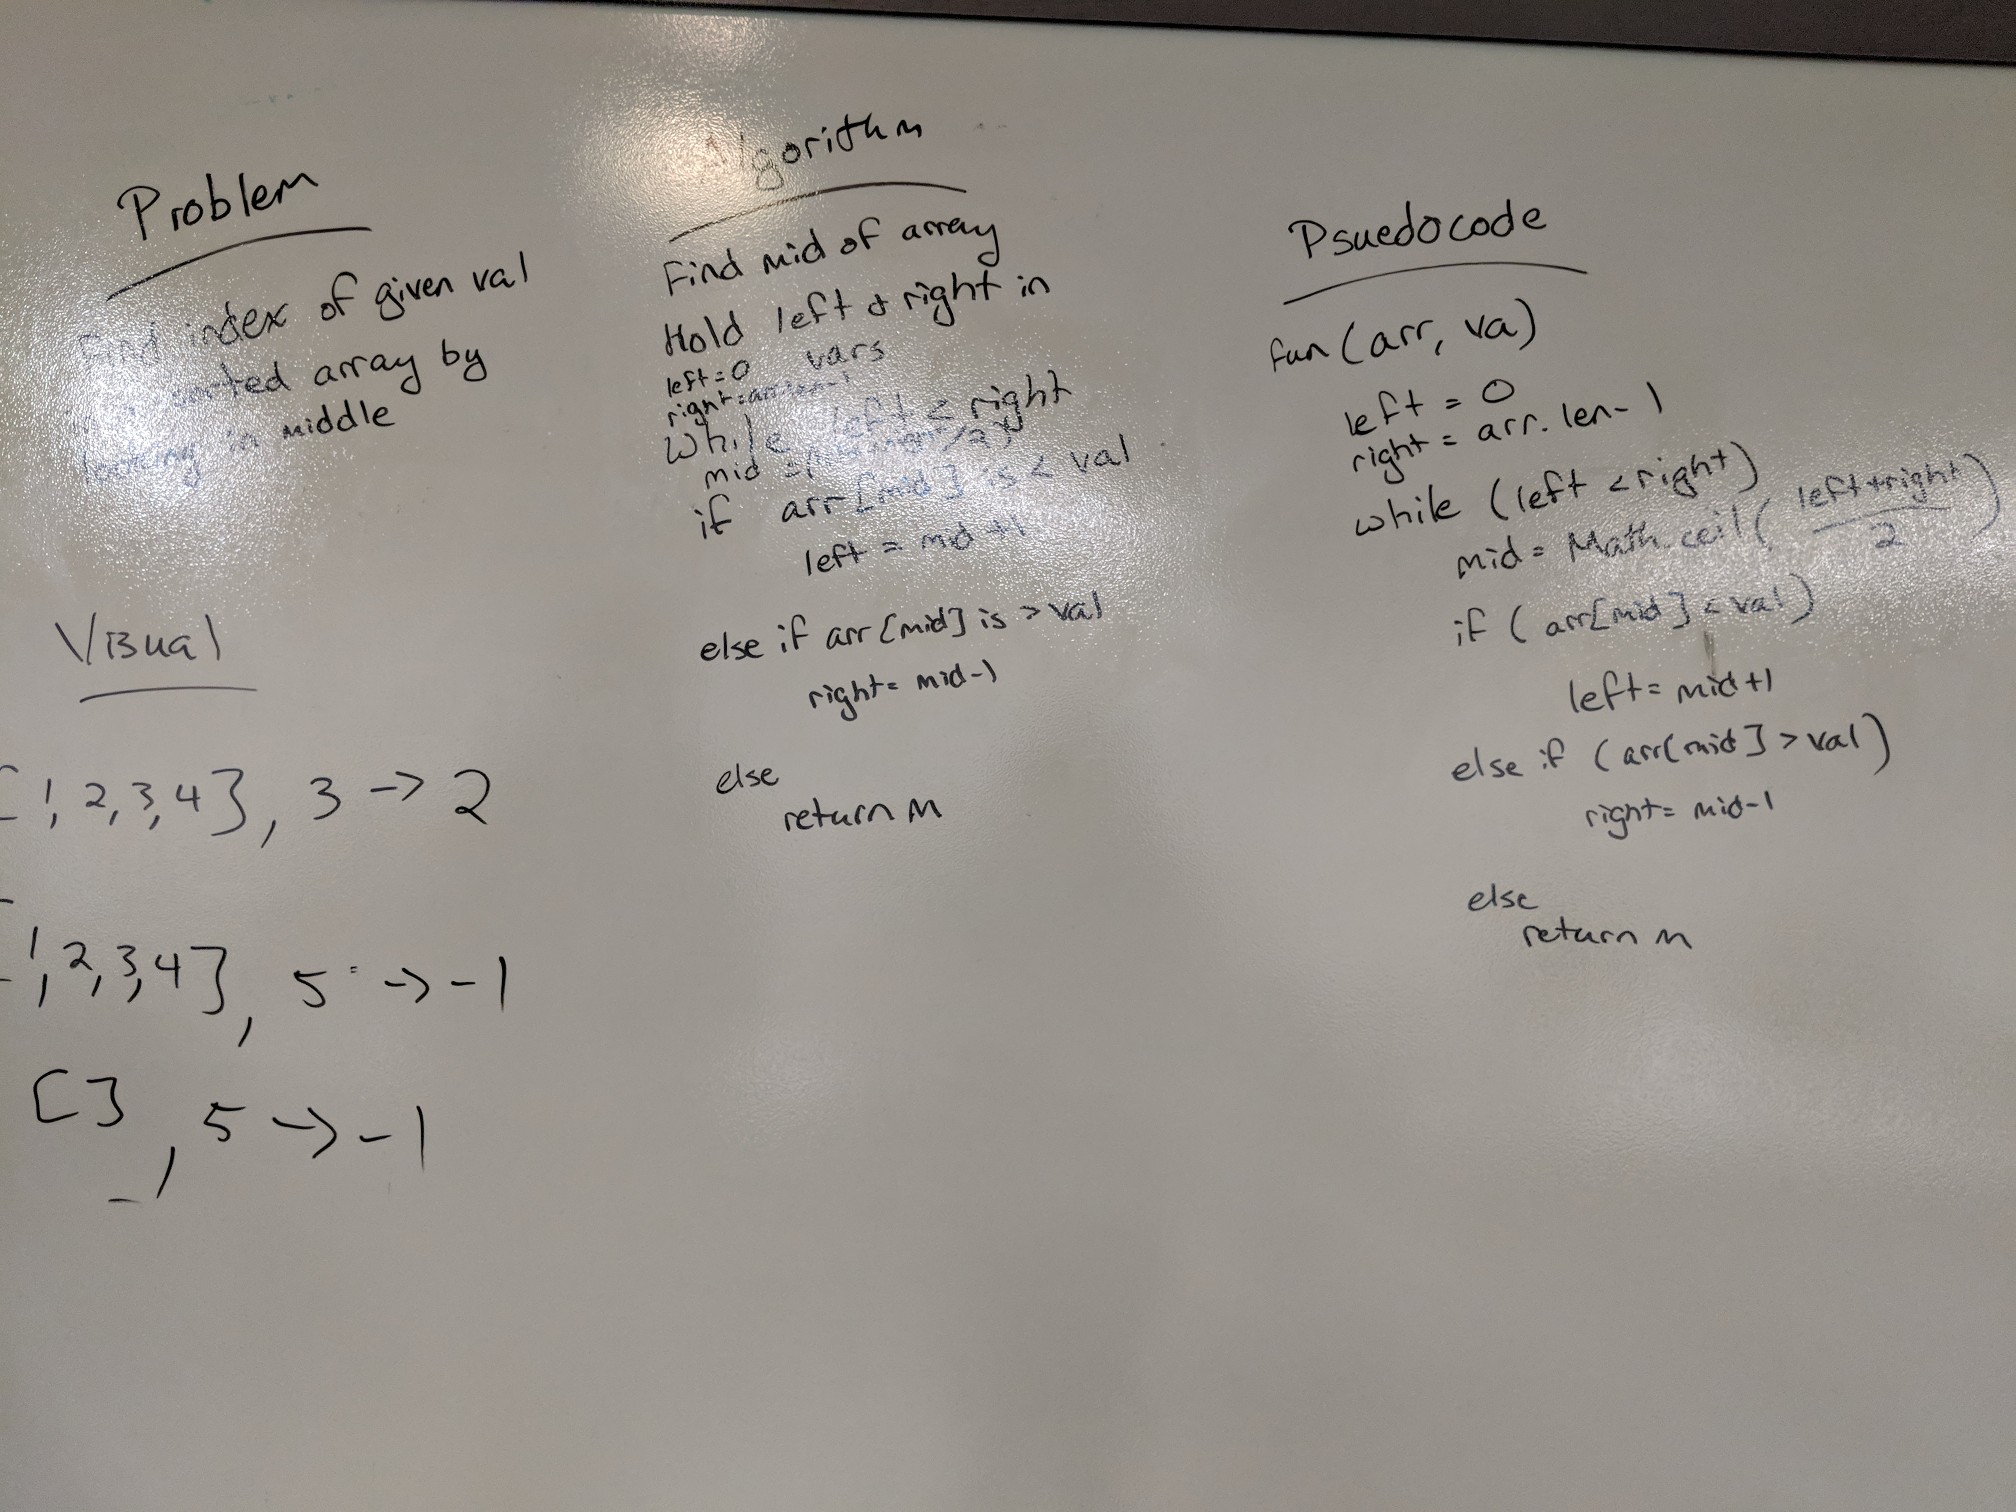 Problem
Find index of given val
in sorted array by
looking in middle
Visual
[1, 2, 3, 4], 3 -> 2
[1, 2, 3, 4], 5 -> -1
[], 5 -> -1
Algorithm
Find mid of array
Hold left + right in
vars
left = 0
right = arr.len-1
While left < right
mid =
if arr[mid] is < val
left = mid +1
else if arr [mid] is > val
right = mid-1
else
return m
Psuedocode
fun (arr, va)
left = 0
right = arr. len-1
while (left < right)
mid = Math.ceil( left+right / 2 )
if ( arr[mid] < val )
left = mid +1
else if ( arr[mid] > val )
right = mid-1
else
return m